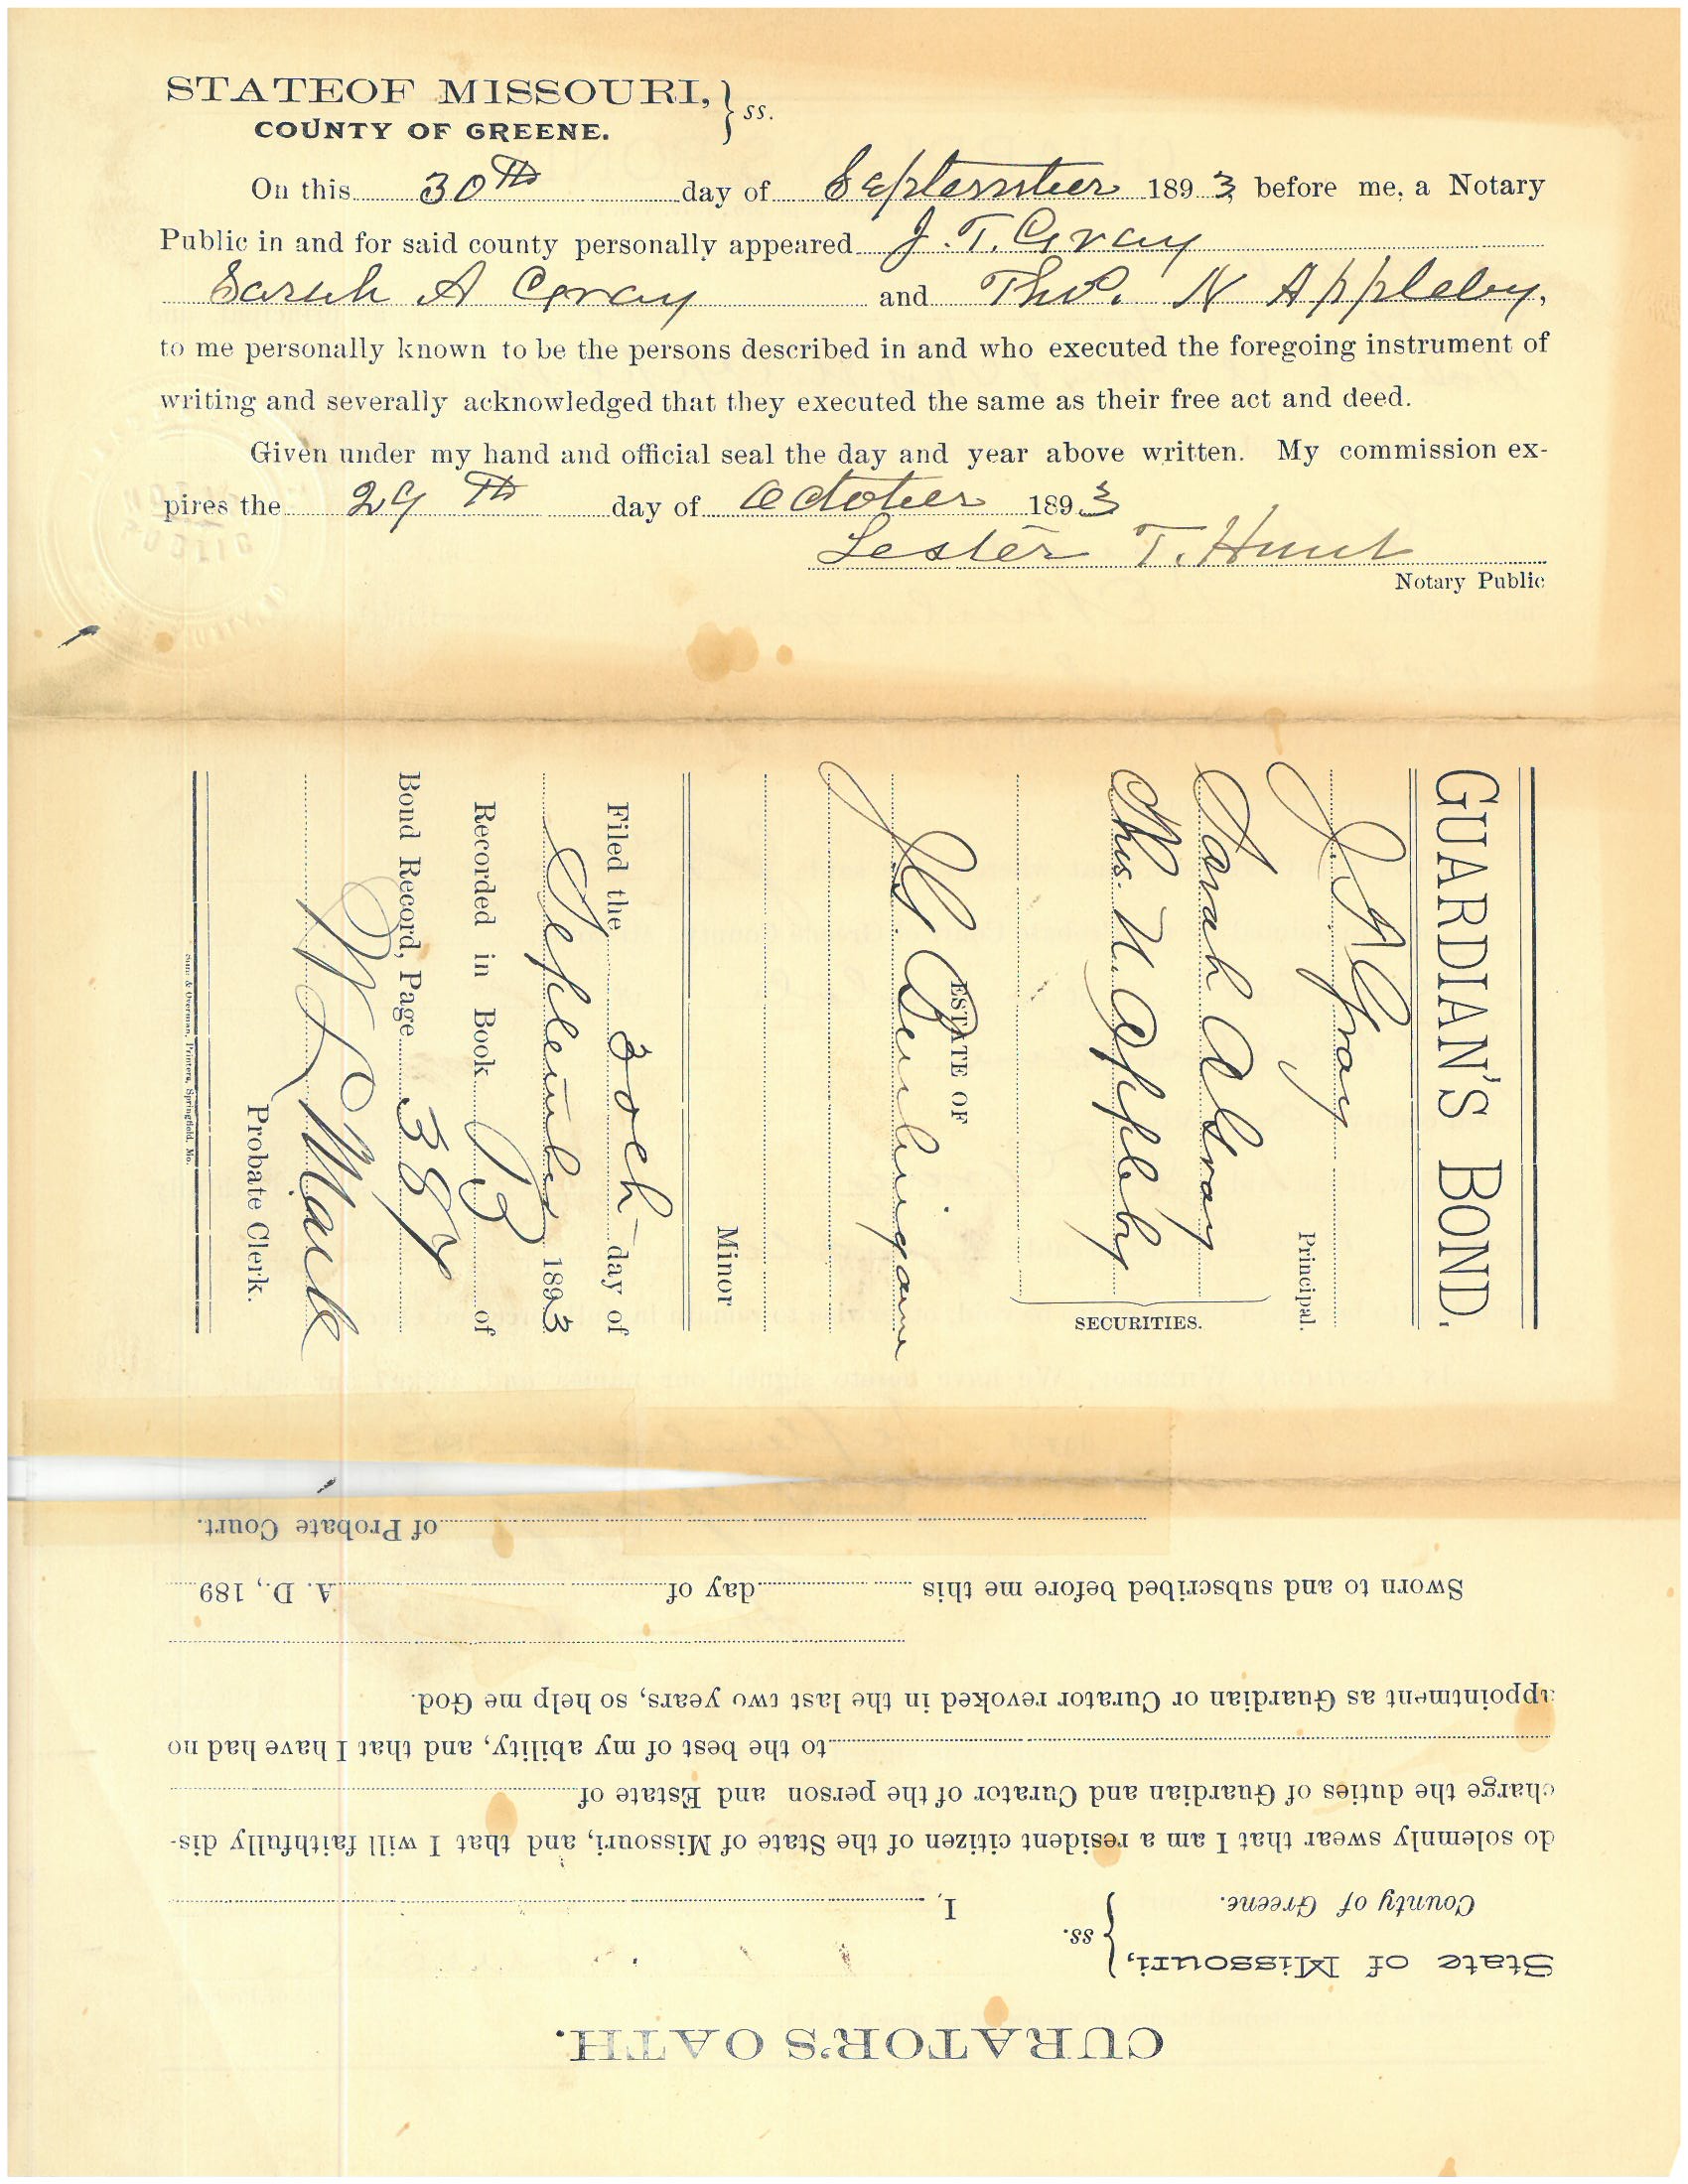 STATEOF MISSOURI, } ss.
COUNTY OF GREENE.
On this 30th day of September 1893, before me, a Notary
Public in and for said county personally appeared J. T. Gray
Sarah A Gray and Thos. N Appleby,
to me personally known to be the persons described in and who executed the foregoing instrument of
writing and severally acknowledged that they executed the same as their free act and deed.
Given under my hand and official seal the day and year above written. My commission ex-
pires the 29th day of October 1893
Lester T. Hunt
Notary Public
GUARDIAN'S BOND.
J. T. Gray
Principal.
Sarah A Gray
Thos. N. Appleby
SECURITIES.
ESTATE OF
Burlingame
Minor
Filed the 30th day of
September 1893
Recorded in Book B of
Bond Record, Page 387
Probate Clerk.
& Overman, Printers, Springfield, Mo.
CURATOR'S OATH.
State of Missouri, } ss.
County of Greene.
I,
do solemnly swear that I am a resident citizen of the State of Missouri, and that I will faithfully dis-
charge the duties of Guardian and Curator of the person and Estate of
to the best of my ability, and that I have had no
appointment as Guardian or Curator revoked in the last two years, so help me God.
Sworn to and subscribed before me this day of A. D., 189
of Probate Court.